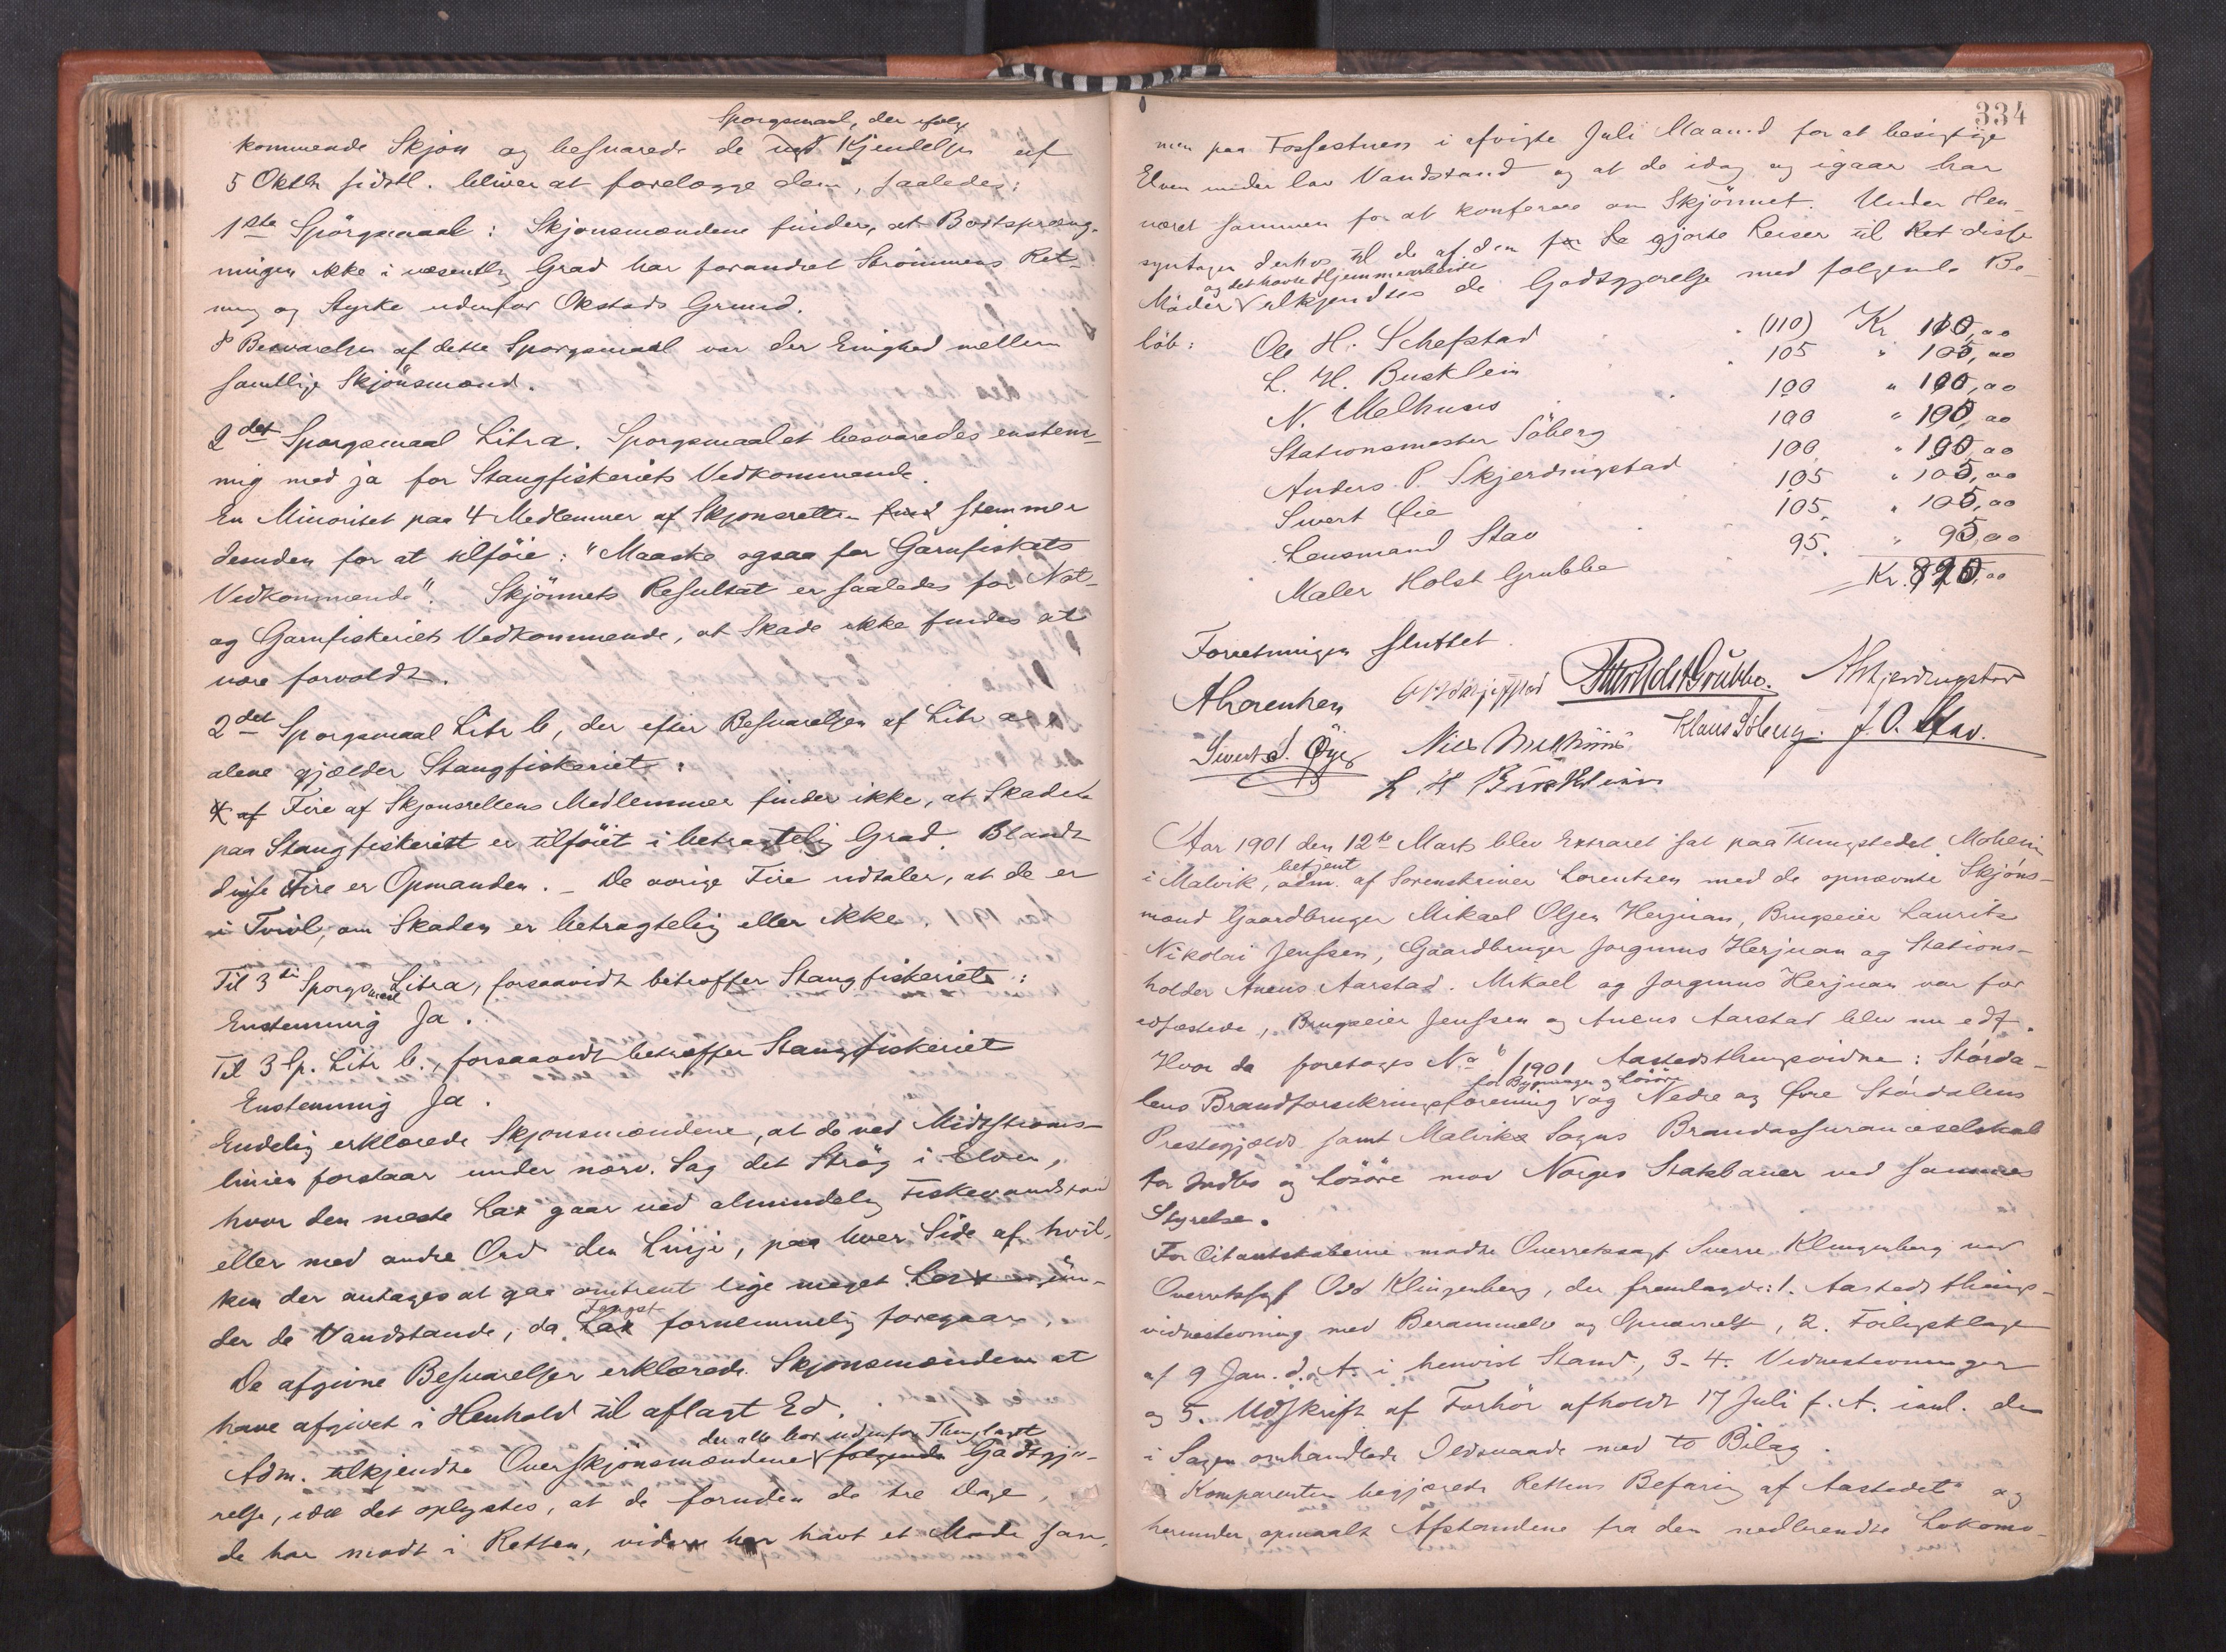 Spørgsmaal, der ifølge
kommende Skjøn og besvarede de ved Kjendelsen af
5 Oktbr sidstl. bliver at forelægge dem, saaledes:
1ste Spørgsmaal: Skjønsmændene finder, at Bortspræng-
ningen ikke i væsentlig Grad har forandret Strømmens Ret-
ning og Styrke udenfor Okstads Grund.
I Besvarelsen af dette Spørgsmaal var der Enighed mellem
samtlige Skjønsmænd.
2det Spørgsmaal Litra. Spørgsmaalet besvaredes enstem-
mig med ja for Stangfiskeriets Vedkommende.
En Minoritet paa 4 Medlemmer af Skjønsretten stemmer
desuden for at tilføie: "Maaske ogsaa for Garnfiskets
Vedkommende". Skjønnets Resultat er saaledes for Not-
og Garnfiskeriets Vedkommende, at Skade ikke findes at
være forvoldt.
2det Spørgsmaal Litr b, der efter Besvarelsen af Litr a
alene gjælder Stangfiskeriet:
af Fire af Skjønsrettens Medlemmer finder ikke, at Skaden
paa Stangfiskeriet er tilføiet i betragtelig Grad. Blandt
disse Fire er Opmanden. - De øvrige Fire udtaler, at de er
i Tvivl, om Skaden er betragtelig eller ikke.
Til 3die Spørgsmaal Litra, forsaavidt betræffer Stangfiskeriet:
Enstemmig Ja.
Til 3 Sp. Litr b., forsaavidt betræffer Stangfiskeriet
Enstemmig Ja.
Endelig erklærede Skjønsmændene, at de ved Midtstrøms-
linien forstaar under nærv. Sag det Strøg i Elven,
hvor den meste Lax gaar ved almindelig Fiskevandstand
eller med andre Ord den Linje, paa hver Side af hvil-
ken der antages at gaa omtrent lige meget Lax un-
der de Vandstande, da Fangst fornemmelig foregaar.
De afgivne Besvarelser erklærede Skjønsmændene at
have afgivet i Henhold til aflagt Ed.
der alle bor udenfor Thinglaget
Adm. tilkjendte Overskjønsmændene følgende Godtgjø-
relse, idet det oplystes, at de foruden de tre Dage,
de har mødt i Retten, videre har havt et Møde sam-
334
men paa Fossestuen i afvigte Juli Maaned for at besigtige
Elven under lav Vandstand og at de idag og igaar har
været sammen for at konferere om Skjønnet. Under Hen-
syntagen derhos til de af dem gjorte Reiser til Ret disse
og det havte Hjemmearbeide
Møder tilkjendtes de Godtgjørelse med følgende Be-
løb: Ole H. Schefstad (110) Kr 110,00
L. H. Busklein 105 " 105,00
N. Melhuus 100 " 100,00
Stationsmester Søberg 100 " 100,00
Anders P. Skjerdingstad 100 " 100,00
Sivert Øie 105 " 105,00
Lensmand Stav 105. " 105,00
Maler Holst Grubbe 95. " 95,00
Kr. 820,00
Forretningen sluttet.
A Lorentzen O H Skjefstad Holst Grubbe. A Skjerdingstad
Sivert S. Øye Niels Melhuus Klaus Søberg. J. O. Stav.
L. H Busklein
Aar 1901 den 12te Marts blev Extraret sat paa Thingstedet Moheim
i Malvik, betjent adm. af Sorenskriver Lorentzen med de opnævnte Skjøns-
mænd Gaardbruger Mikael Olsen Herjuan, Brugseier Laurits
Nikolai Jenssen, Gaardbruger Jørginus Herjuan og Stations-
holder Aneus Aarstad. Mikael og Jørginus Herjuan var før
edfæstede, Brugseier Jenssen og Aneus Aarstad blev nu edf.
Hvor da foretoges No 6/1901 Aastedsthingsvidne: Størda-
for Bygninger og Løsøre
lens Brandforsikringsforening og Nedre og Øvre Størdalens
Prestegjælds samt Malviks Sogns Brandassuranceselskab
for Indbo og Løsøre mod Norges Statsbaner ved sammes
Styrelse.
For Citantskaberne mødte Overretssagf Sverre Klingenberg ved
Overretssagf Odd Klingenberg, der fremlagde: 1. Aastedsthings-
vidnestevning med Berammelse og Opnævnelse, 2. Forligsklage
af 9 Jan. d. A. i henvist Stand, 3-4. Vidnestevninger
og 5. Udskrift af Forhør afholdt 17 Juli f. A. ianl. den
i Sagen omhandlede Ildsvaade med to Bilag.
Komparenten begjærede Rettens Befaring af Aastedet og
herunder opmaalt Afstandene fra den nedbrendte Lokomo-